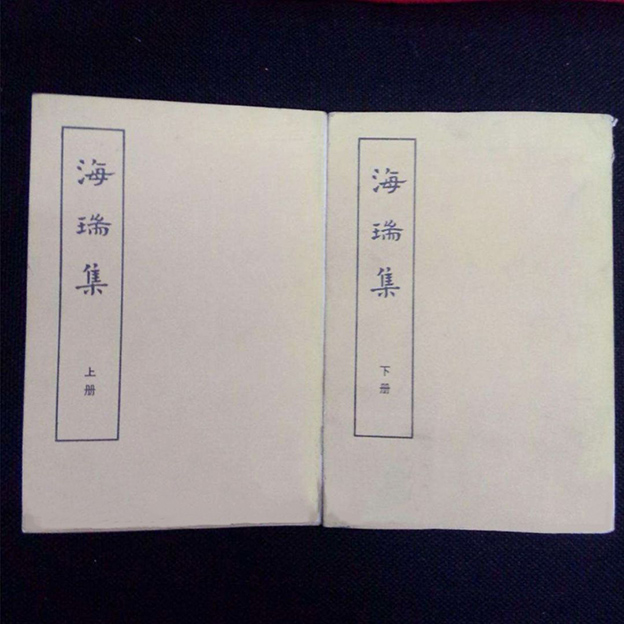 海瑞集
上册
海瑞集
下册